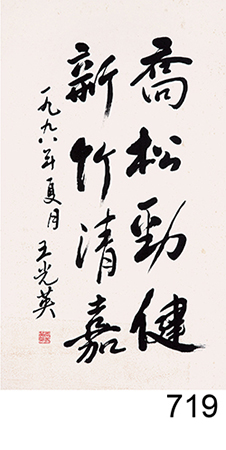 喬松勁健
新竹清嘉
一九九六年夏月
王光英
719